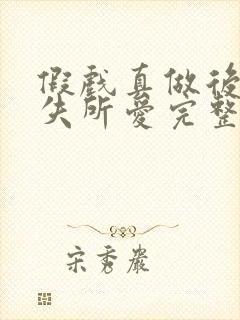 假戲真做後
失所愛完整
宋秀巖